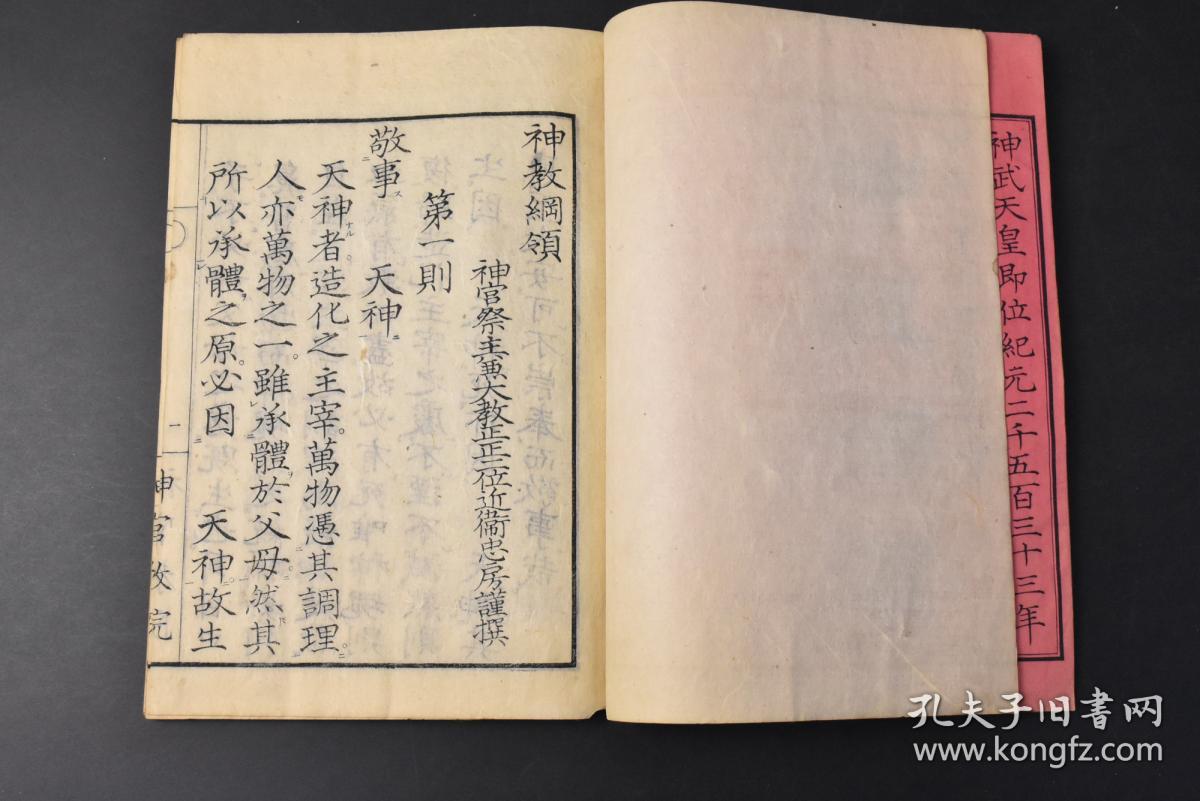 神武天皇即位紀元二千五百三十三年
神教綱領
神官祭主兼大教正正二位近衞忠房謹撰
第一則
敬事ス 天神ニ
天神者ナル造化之主宰。萬物憑其調理。ニ
人モ亦萬物之一。雖承レ體ヲ於父母ニ。然ドモ其
所以承レ體ヲ之原。必因ニ 天神ニ。故ニ生
二
神官教院
孔夫子旧书网
www.kongfz.com